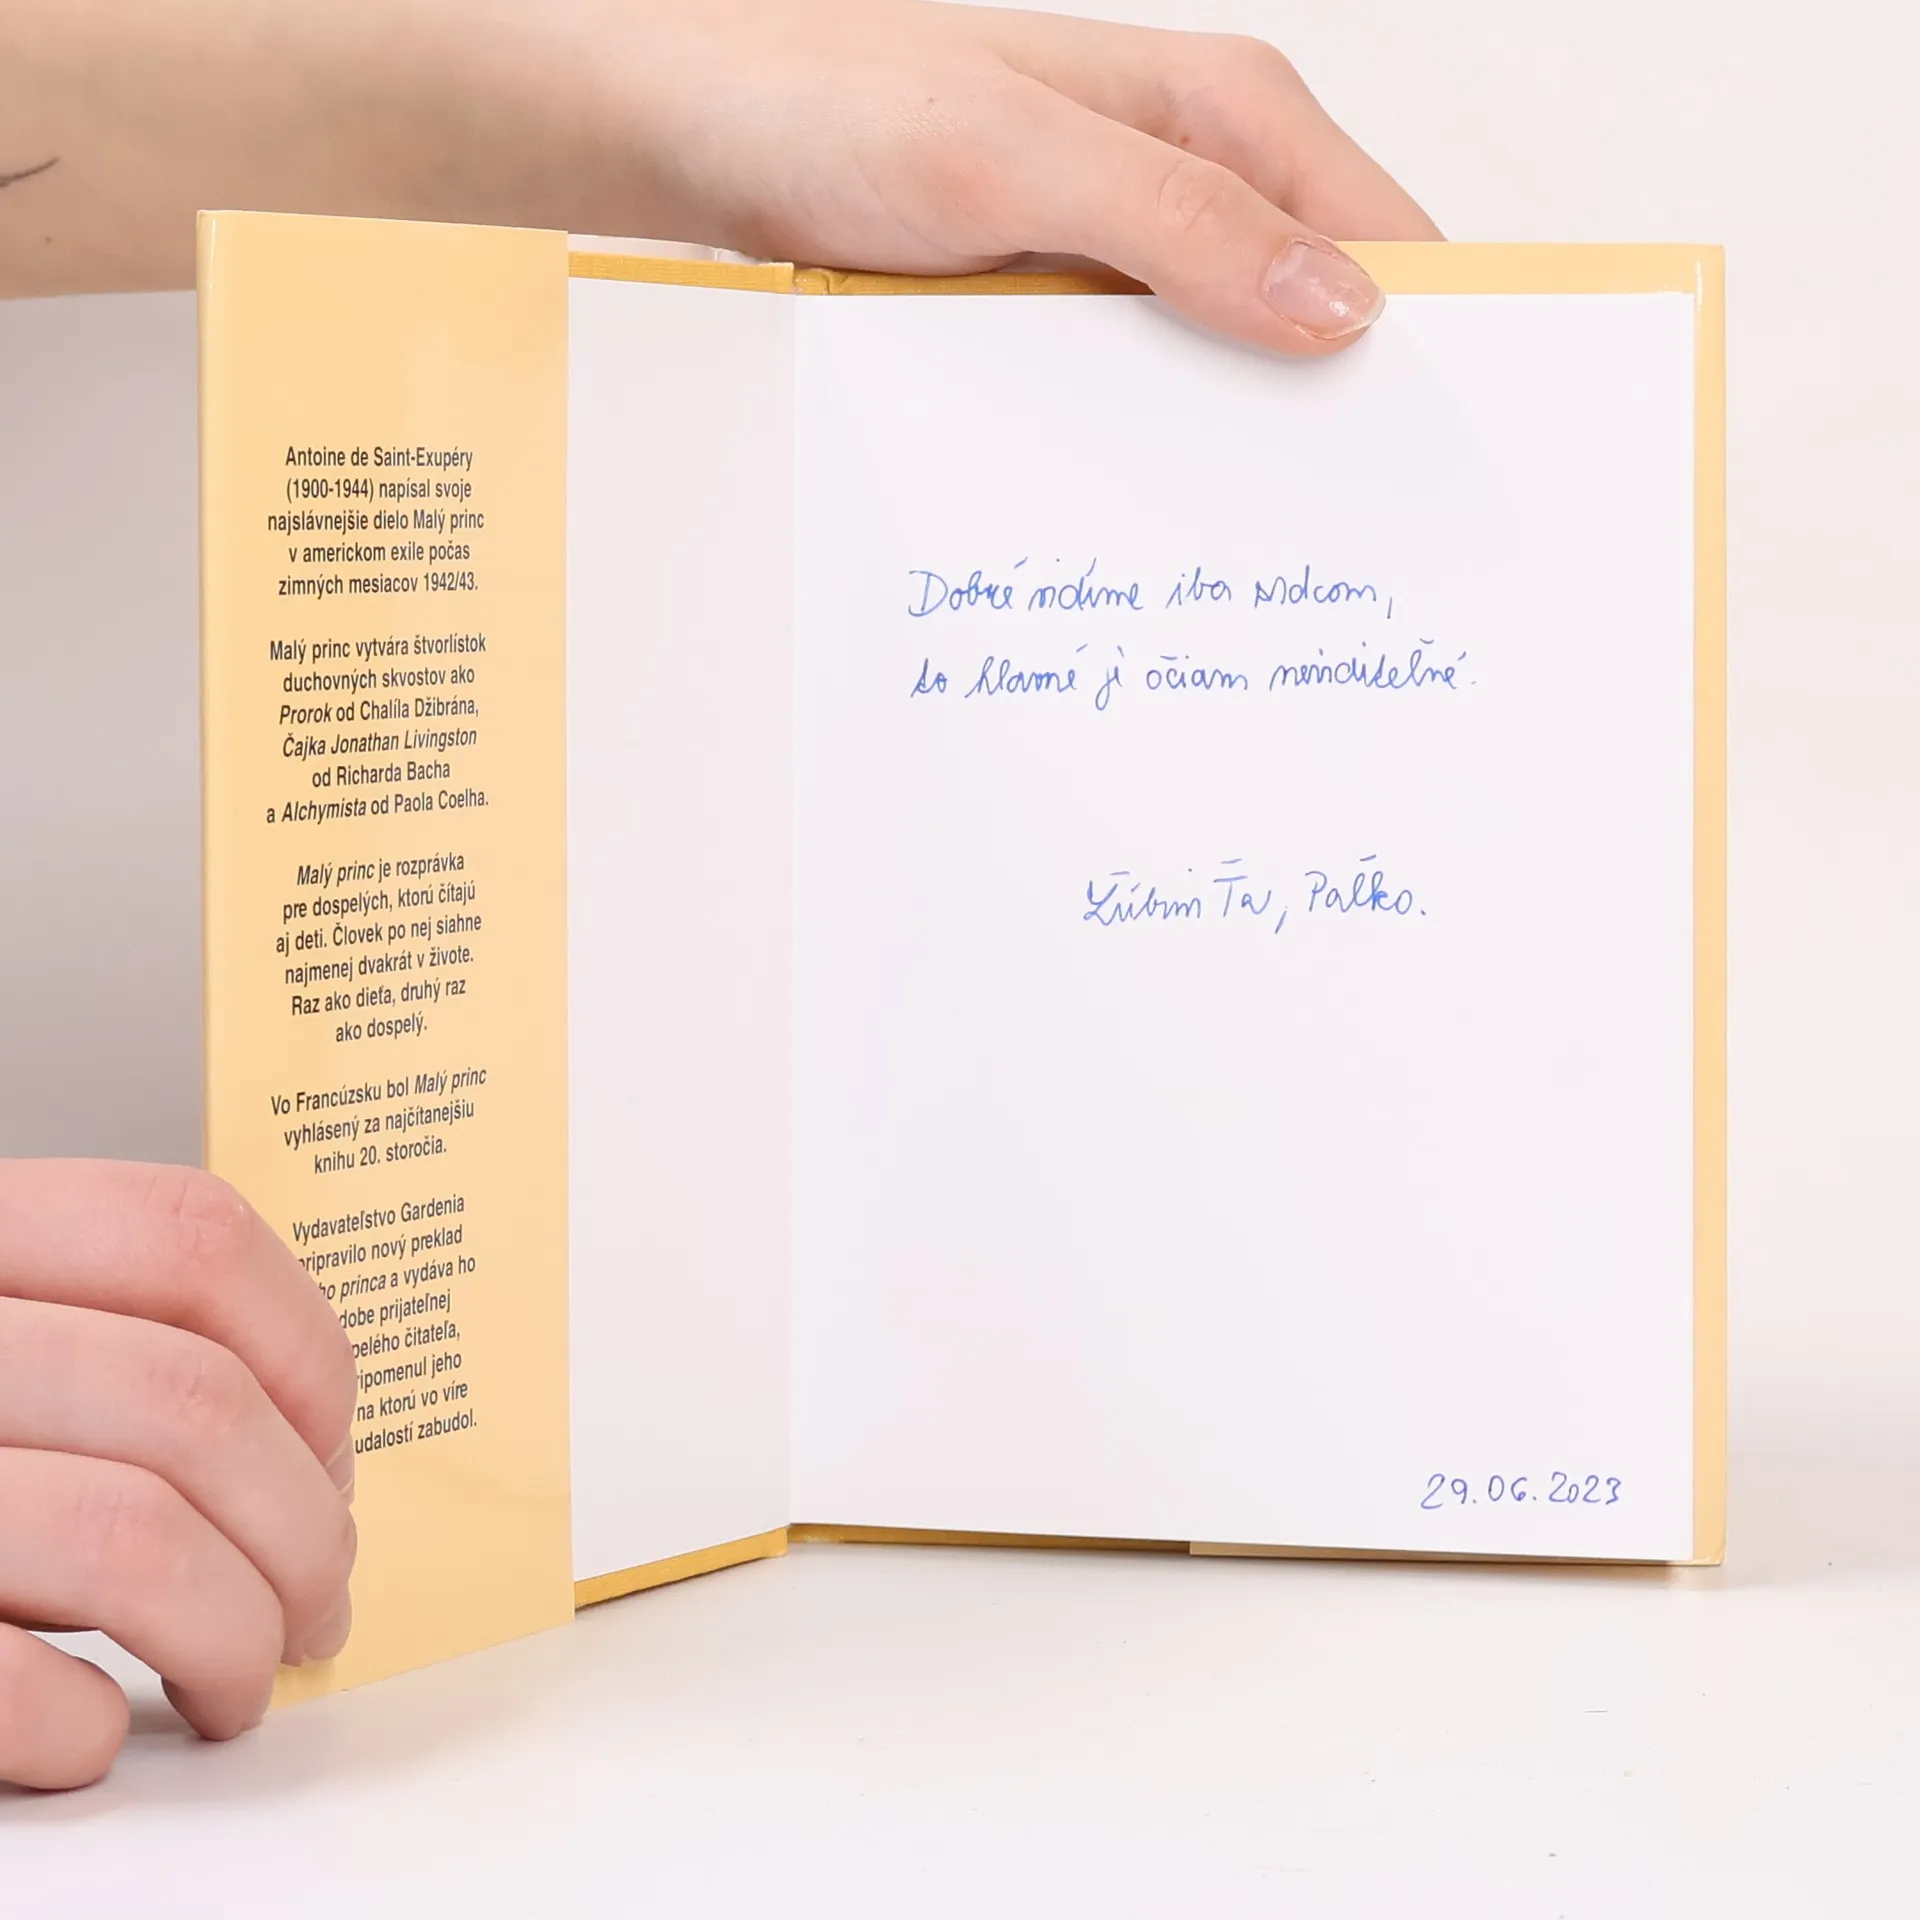 Antoine de Saint-Exupéry
(1900-1944) napísal svoje
najslávnejšie dielo Malý princ
v americkom exile počas
zimných mesiacov 1942/43.
Malý princ vytvára štvorlístok
duchovných skvostov ako
Prorok od Chalíla Džibrána,
Čajka Jonathan Livingston
od Richarda Bacha
a Alchymista od Paola Coelha.
Malý princ je rozprávka
pre dospelých, ktorú čítajú
aj deti. Človek po nej siahne
najmenej dvakrát v živote.
Raz ako dieťa, druhý raz
ako dospelý.
Vo Francúzsku bol Malý princ
vyhlásený za najčítanejšiu
knihu 20. storočia.
Vydavateľstvo Gardenia
pripravilo nový preklad
ho princa a vydáva ho
dobe prijateľnej
pelého čitateľa,
ripomenul jeho
na ktorú vo víre
udalostí zabudol.
Dobré vidíme iba srdcom,
to hlavné je očiam neviditeľné.
Ľúbim Ťa, Paľko.
29.06.2023